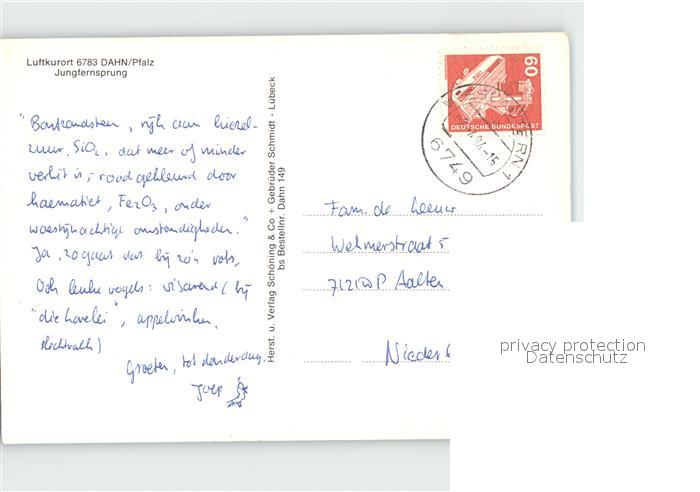 Luftkurort 6783 DAHN/Pfalz
Jungfernsprung
"Bontzandsteen, rijk aan kiezel-
zuur, SiO2, dat meer of minder
verhit is, roodgekleurd door
haematiet, Fe2O3, onder
woestijnachtige omstandigheden."
Ja, zo gaat dat bij zo'n rots.
Ook leuke vogels: visarend (bij
"die ", appelvinken,
slechtvalk)
Groeten, tot donderdag,
Joep
Herst. u. Verlag Schöning & Co + Gebrüder Schmidt - Lübeck
bs Bestellnr. Dahn 149
60
DEUTSCHE BUNDESPOST
6749
ERN 1
-15
Fam. de Leeuw
Wehmerstraat 5
7121 WP Aalten
Nieder
privacy protection
Datenschutz